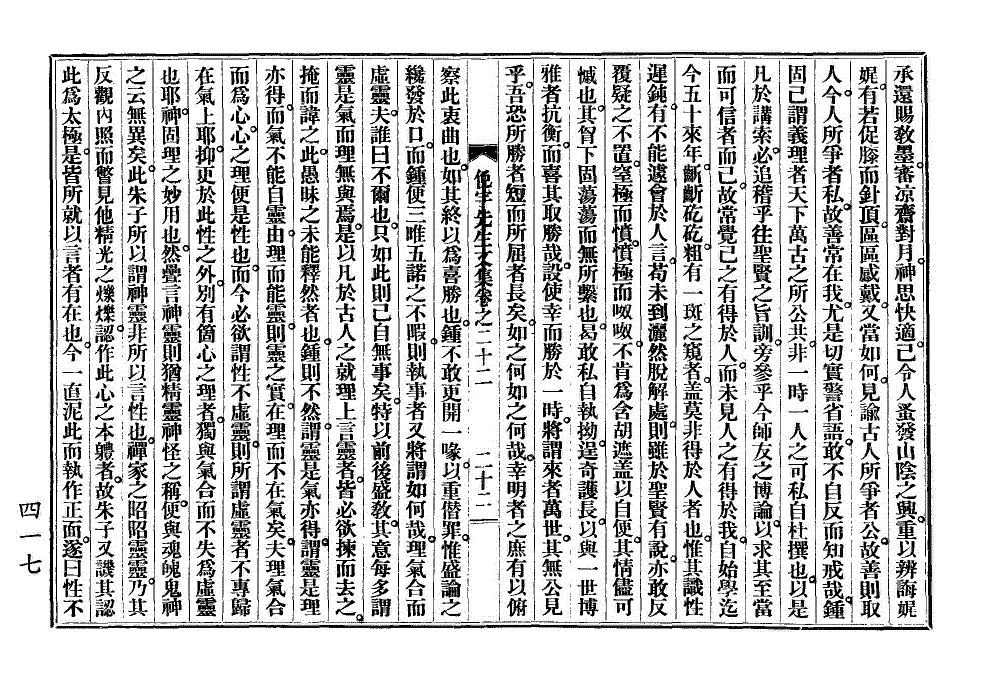 承還賜敎墨。審凉齋對月。神思快適。已令人蚤發山陰之興。重以辨誨娓
娓。有若促膝而針頂。區區感戴。又當如何。見諭古人所爭者公。故善則取
人。今人所爭者私。故善常在我。尤是切實警省語。敢不自反而知戒哉。鍾
固已謂義理者天下萬古之所公共。非一時一人之可私自杜撰也。以是
凡於講索。必追稽乎往聖賢之旨訓。旁參乎今師友之博論。以求其至當
而可信者而已。故常覺己之有得於人。而未見人之有得於我。自始學迄
今五十來年。斷斷矻矻。粗有一斑之窺者。盖莫非得於人者也。惟其識性
遲鈍。有不能遽會於人言。苟未到灑然脫解處。則雖於聖賢有說。亦敢反
覆疑之不置。窒極而憤。憤極而呶呶。不肯爲含胡遮盖以自便。其情儘可
慽也。其胷下固蕩蕩而無所繫也。曷敢私自執拗。逞奇護長。以與一世博
雅者抗衡。而喜其取勝哉。設使幸而勝於一時。將謂來者萬世。其無公見
乎。吾恐所勝者短而所屈者長矣。如之何如之何哉。幸明者之庶有以俯
俛宇先生文集卷之二十二 二十二
察此衷曲也。如其終以爲喜勝也。鍾不敢更開一喙。以重僣罪。惟盛論之
纔發於口。而鍾便三唯五諾之不暇。則執事者又將謂如何哉。理氣合而
虛靈。夫誰曰不爾也。只如此則已自無事矣。特以前後盛敎。其意每多謂
靈是氣而理無與焉。是以凡於古人之就理上言靈者。皆必欲揀而去之。
掩而諱之。此愚昧之未能釋然者也。鍾則不然。謂靈是氣亦得。謂靈是理
亦得。而氣不能自靈。由理而能靈。則靈之實在理而不在氣矣。夫理氣合
而爲心。心之理便是性也。而今必欲謂性不虛靈。則所謂虛靈者不專歸
在氣上耶。抑更於此性之外。別有箇心之理者。獨與氣合而不失爲虛靈
也耶。神固理之妙用也。然疊言神靈則猶精靈神怪之稱。便與魂魄鬼神
之云無異矣。此朱子所以謂神靈非所以言性也。禪家之昭昭靈靈。乃其
反觀內照而瞥見他精光之爍爍。認作此心之本軆者。故朱子又譏其認
此爲太極。是皆所就以言者有在也。今一直泥此而執作正面。遂曰性不
四一七